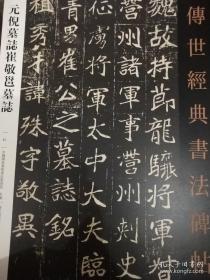 傳世經典書法碑帖
魏故持節龍驤將
營州諸軍事營州
征虜將軍太中大夫臨
青男崔公之墓誌銘
祖秀才諱殊字敬異
元倪墓誌崔敬邕墓誌